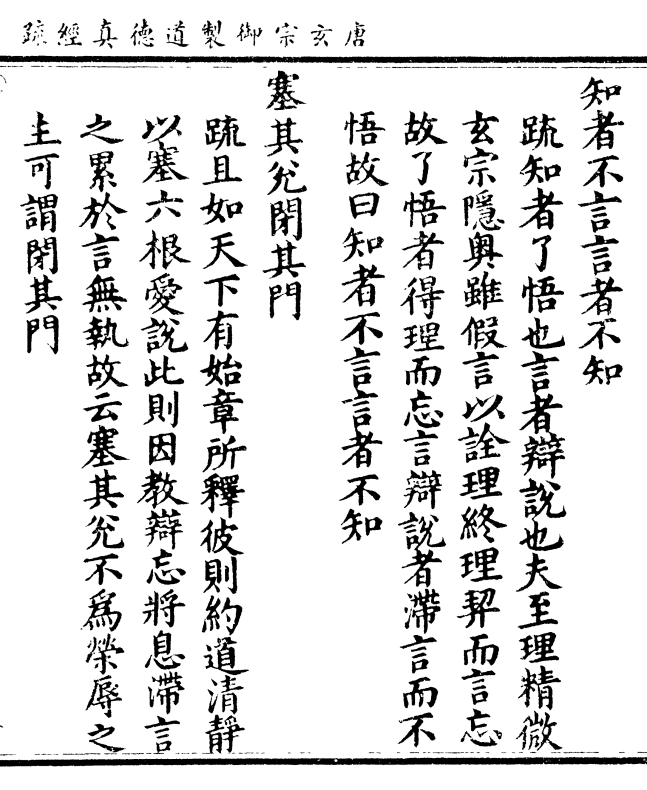 唐玄宗御製道德真經疏
知者不言言者不知
疏知者了悟也言者辯說也夫至理精微
玄宗隱奧雖假言以詮理終理契而言忘
故了悟者得理而忘言辯說者滯言而不
悟故曰知者不言言者不知
塞其兊閉其門
疏且如天下有始章所釋彼則約道清靜
以塞六根愛說此則因教辯忘將息滯言
之累於言無執故云塞其兊不為榮辱之
主可謂閉其門